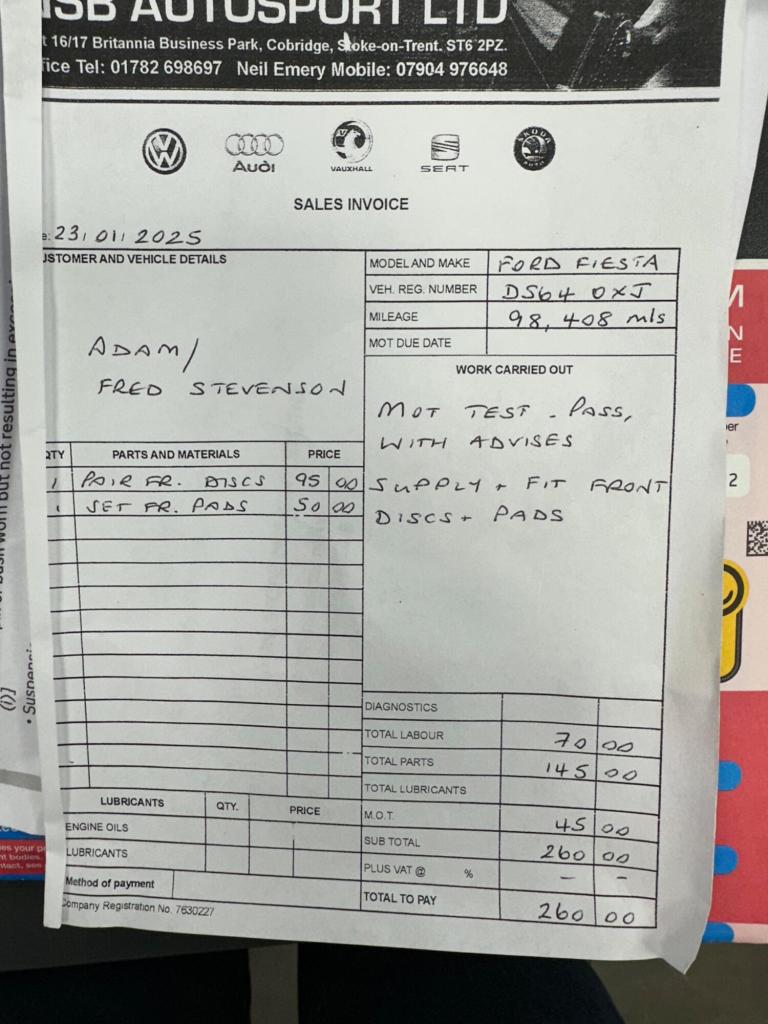 SB AUTOSPORT LTD
t 16/17 Britannia Business Park, Cobridge, Stoke-on-Trent. ST6 2PZ.
fice Tel: 01782 698697 Neil Emery Mobile: 07904 976648
Audi
VAUXHALL
SEAT
SKODA
AUTO
SALES INVOICE
e: 23/01/2025
USTOMER AND VEHICLE DETAILS
ADAM/
FRED STEVENSON
MODEL AND MAKE FORD FIESTA
VEH. REG. NUMBER DS64 OXJ
MILEAGE 98,408 mls
MOT DUE DATE
WORK CARRIED OUT
MOT TEST - PASS,
WITH ADVISES
SUPPLY + FIT FRONT
DISCS + PADS
QTY PARTS AND MATERIALS PRICE
1 PAIR FR. DISCS 95 00
1 SET FR. PADS 50 00
DIAGNOSTICS
TOTAL LABOUR 70 00
TOTAL PARTS 145 00
TOTAL LUBRICANTS
M.O.T. 45 00
SUB TOTAL 260 00
PLUS VAT @ % – –
TOTAL TO PAY 260 00
LUBRICANTS QTY. PRICE
ENGINE OILS
LUBRICANTS
Method of payment
Company Registration No. 7630227
but not resulting in
(i)]
• Suspensi
M
N
E
er
2
es your p
nt bodies.
ntact, see